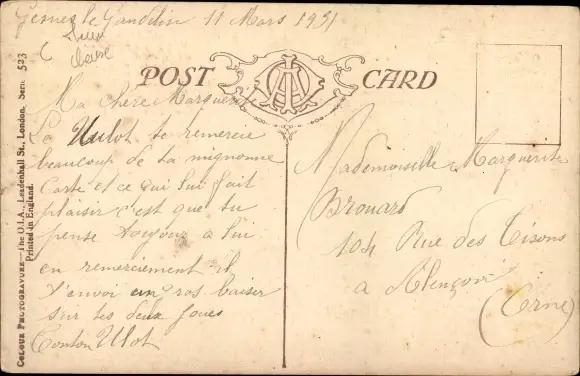 Gesnes le Gandelin 11 Mars 1931
POST CARD
Ma chère Marguerite
La Ulot te remercie
beaucoup de ta mignonne
Carte et ce qui lui fait
plaisir c'est que tu
pense toujour a lui
en remerciement il
t'envoi un gros baiser
sur tes deux joues
Tonton Ulot
Mademoiselle Marguerite
Brouard
104 Rue des Tisons
a Alençon
(Orne)
COLOUR PHOTOGRAVURE—The O.I.A., Leadenhall St., London. Serie 523
Printed in England.